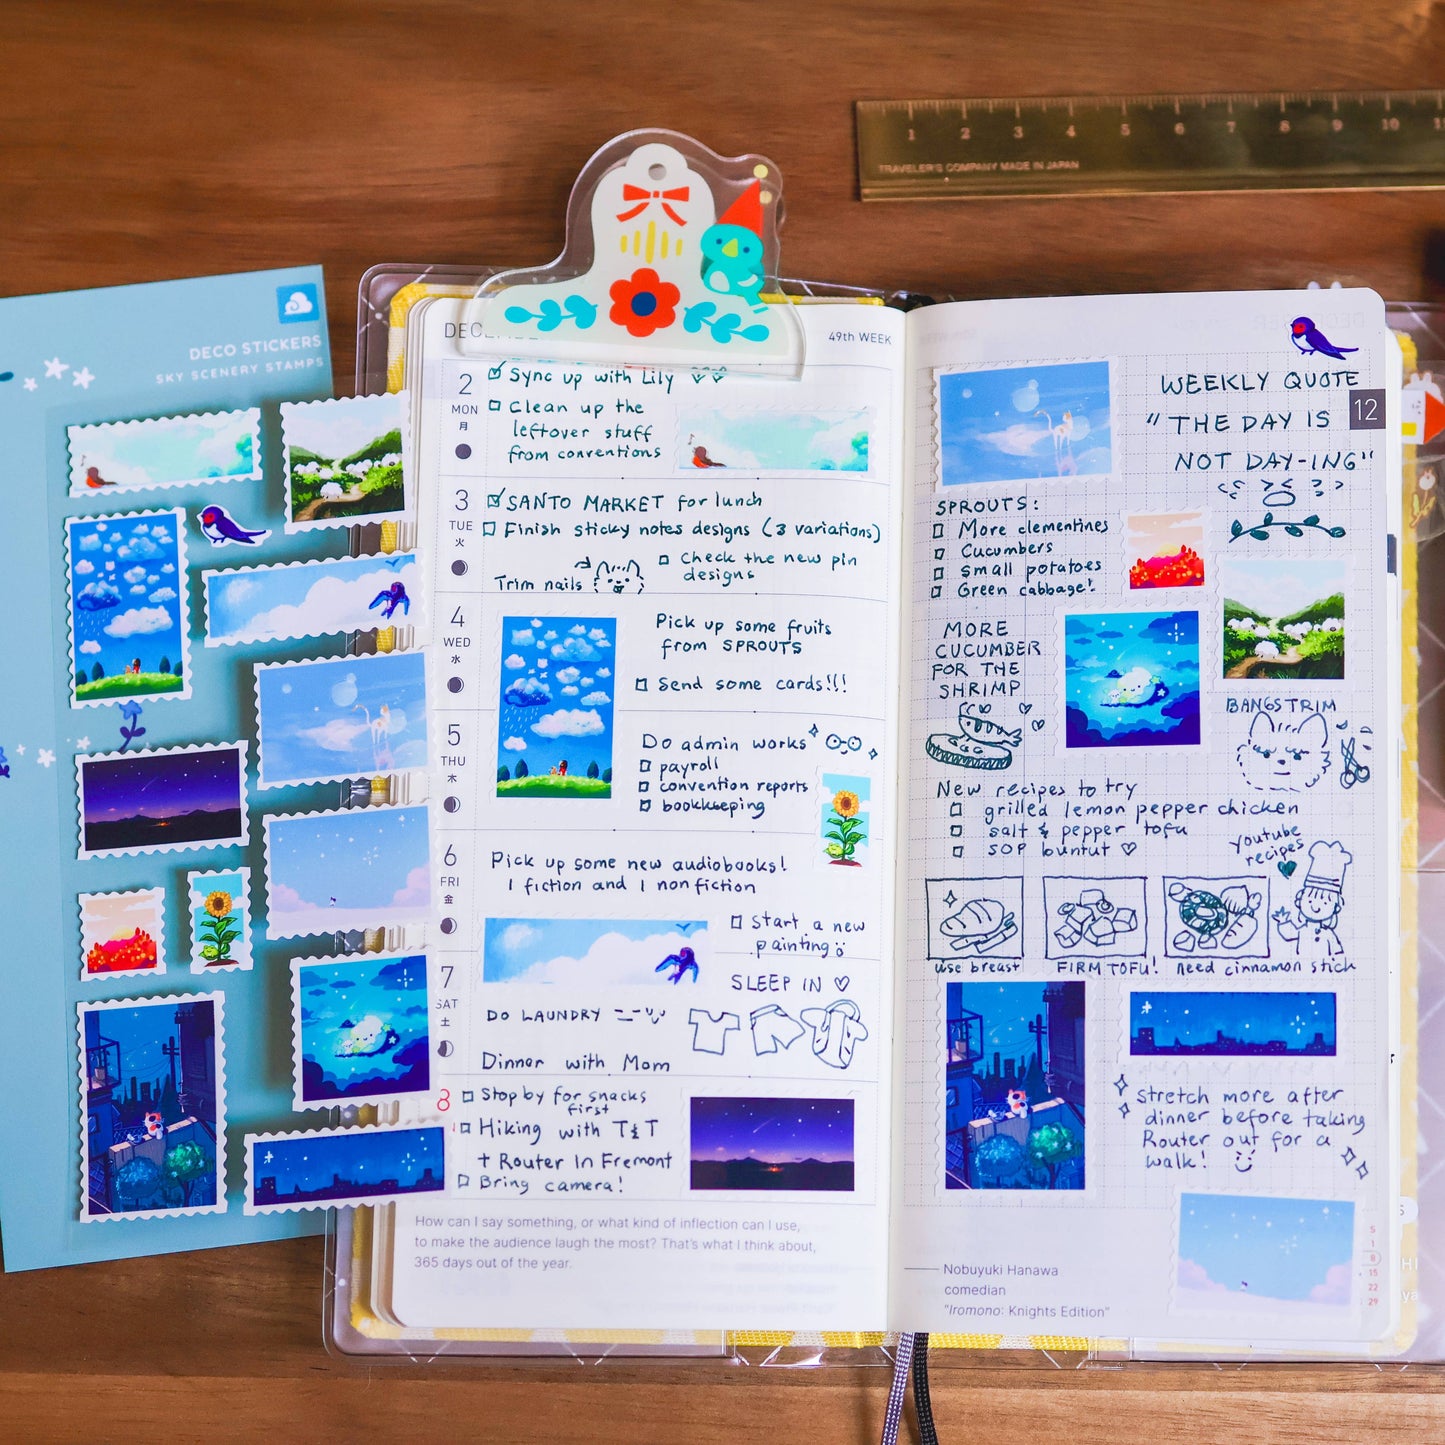 1 2 3 4 5 6 7 8 9 10
TRAVELER'S COMPANY MADE IN JAPAN
DECO STICKERS
SKY SCENERY STAMPS
49th WEEK
2
MON
月
Sync up with Lily
Clean up the
leftover stuff
from conventions
3
TUE
火
SANTO MARKET for lunch
Finish sticky notes designs (3 variations)
Trim nails
Check the new pin
designs
4
WED
水
Pick up some fruits
from SPROUTS
Send some cards!!!
5
THU
木
Do admin works
payroll
convention reports
bookkeeping
6
FRI
金
Pick up some new audiobooks!
1 fiction and 1 nonfiction
Start a new
painting
7
SAT
土
SLEEP IN
DO LAUNDRY
Dinner with Mom
8
Stop by for snacks
first
Hiking with T&T
+ Router In Fremont
Bring camera!
How can I say something, or what kind of inflection can I use,
to make the audience laugh the most? That's what I think about,
365 days out of the year.
12
WEEKLY QUOTE
"THE DAY IS
NOT DAY-ING"
SPROUTS:
More clementines
Cucumbers
small potatoes
Green cabbage!
MORE
CUCUMBER
FOR THE
SHRIMP
BANGSTRIM
New recipes to try
grilled lemon pepper chicken
salt & pepper tofu
SOP buntut
youtube
recipes
use breast
FIRM TOFU!
need cinnamon stick
stretch more after
dinner before taking
Router out for a
walk!
Nobuyuki Hanawa
comedian
"Iromono: Knights Edition"
5
1
8
15
22
29